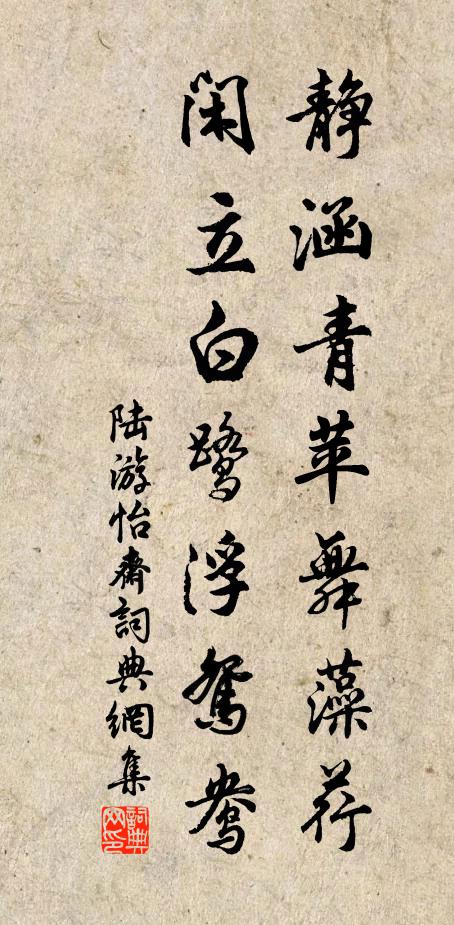 静涵青苹舞藻荇
闲立白鹭浮鸳鸯
陆游怡斋詞典網集
詞典网印